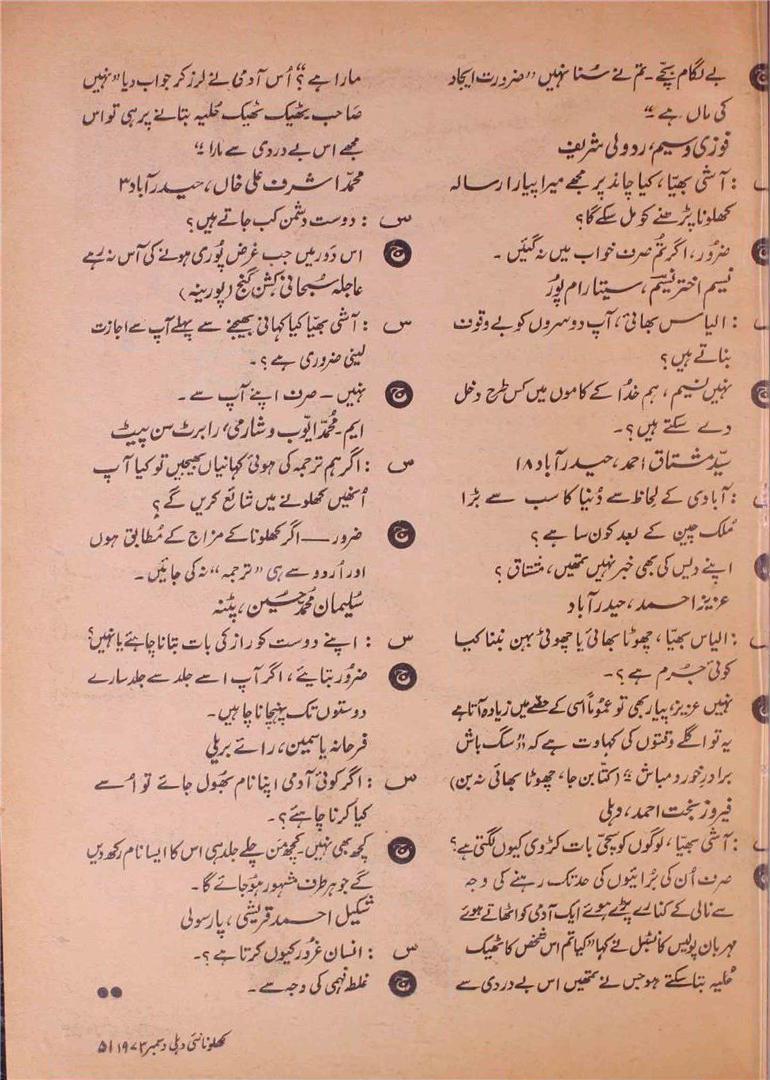 ج بے لگام بچّے۔ تم نے سُنا نہیں "ضرورت ایجاد
کی ماں ہے۔"
فوزی وسیم، ردولی شریف
س : آشی بھیّا، کیا چاند پر مجھے میرا پیارا رسالہ
کھلونا پڑھنے کو مل سکے گا؟
ج ضرُور، اگر تُم صرف خواب میں نہ گئیں۔
نسیم اختر نسیمؔ، سیتا رام پوُر
س : الیاس بھائی، آپ دوسروں کو بے وقوف
بناتے ہیں؟
ج نہیں نسیم، ہم خُدا کے کاموں میں کس طرح دخل
دے سکتے ہیں؟۔
سیّد مشتاق احمد، حیدرآباد ۱۸
س : آبادی کے لحاظ سے دُنیا کا سب سے بڑا
مُلک چین کے بعد کون سا ہے؟
ج اپنے دیس کی بھی خبر نہیں تمھیں، مشتاق؟
عزیز احمد، حیدرآباد
س : الیاس بھیّا، چھوٹا بھائی یا چھوٹی بہن بننا کیا
کوئی جُرم ہے؟۔
ج نہیں عزیز، پیار بھی تو عمُوماً اُسی کے حصّے میں زیادہ آتا ہے
یہ تو اگلے وقتوں کی کہاوت ہے کہ "سگ باش
برادرِ خورد مباش" (کتّا بن جا، چھوٹا بھائی نہ بن)
فیروز بخت احمد، دہلی
س : آشی بھیّا، لوگوں کو سچّی بات کڑوی کیوں لگتی ہے؟
ج صرف اُن کی بُرائیوں کی حد تک رہنے کی وجہ
سے نالی کے کنارے پڑے ہوئے ایک آدمی کو اٹھاتے ہوئے
مہربان پولیس کانسٹبل نے کہا "کیا تم اس شخص کا ٹھیک
حُلیہ بتا سکتے ہو جس نے تمھیں اس بے دردی سے
مارا ہے؟" اُس آدمی نے لرز کر جواب دیا "نہیں
صاحب ٹھیک ٹھیک حُلیہ بتانے پر ہی تو اس
مجھے اس بے دردی سے مارا۔"
محمّد اشرف علی خاں، حیدرآباد ۳
س : دوست دشمن کب جاتے ہیں؟
ج اس دَور میں جب غرض پوُری ہونے کی آس نہ رہے
عاجلہ سُبحانی، کشن گنج (پورینہ)
س : آشی بھیّا کیا کہانی بھیجنے سے پہلے آپ سے اجازت
لینی ضروری ہے؟۔
ج نہیں – صرف اپنے آپ سے۔
ایم۔ محُمّد ایّوب وشارمی، رابرٹ سن پیٹ
س : اگر ہم ترجمہ کی ہوئی کہانیاں بھیجیں تو کیا آپ
اُنھیں کھلونے میں شائع کریں گے؟
ج ضرور — اگر کھلونا کے مزاج کے مُطابق ہوں
اور اُردو سے ہی "ترجمہ" نہ کی جائیں۔
سُلیمان محُمّد حُسین، پٹنہ
س : اپنے دوست کو راز کی بات بتانا چاہئے یا نہیں؟
ج ضرُور بتایئے، اگر آپ اسے جلد سے جلد سارے
دوستوں تک پہنچانا چاہیں۔
فرحانہ یاسمین، رائے بریلی
س : اگر کوئی آدمی اپنا نام بھُول جائے تو اُسے
کیا کرنا چاہئے؟۔
ج کچھ بھی نہیں۔ کچھ من چلے جلد ہی اس کا ایسا نام رکھ دیں
گے جو ہر طرف مشہور ہو جائے گا۔
شکیل احمد قریشی، پارسولی
س : انسان غرُور کیوں کرتا ہے؟۔
ج غلط فہمی کی وجہ سے۔
کھلونا نئی دہلی دسمبر ۱۹۷۳ ۵۱